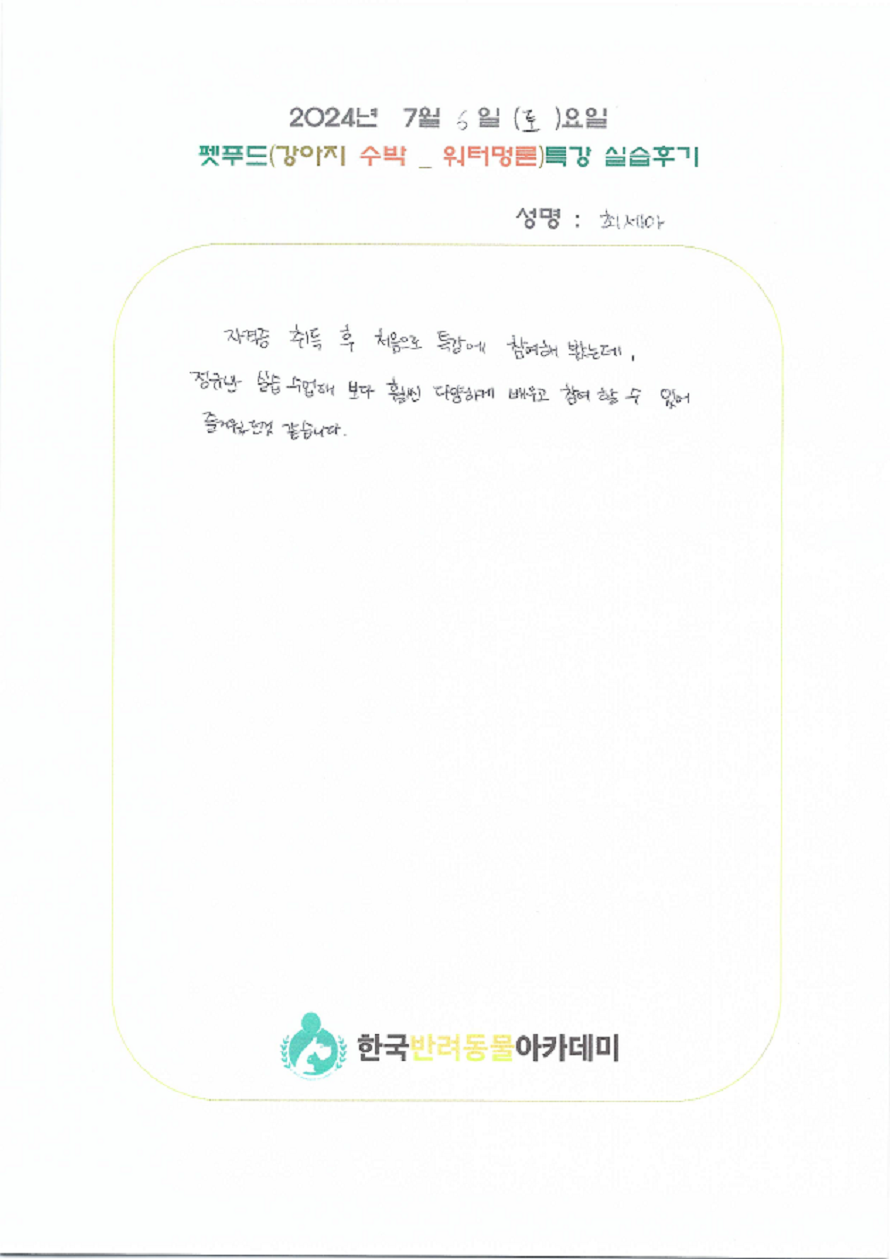 2024년 7월 6일 (토)요일
펫푸드(강아지 수박 _ 워터멍론)특강 실습후기
성명 : 최세아
자격증 취득 후 처음으로 특강에 참여해 봤는데,
정규반 실습 수업때 보다 훨씬 다양하게 배우고 참여 할 수 있어
즐거웠던것 같습니다.
한국반려동물아카데미